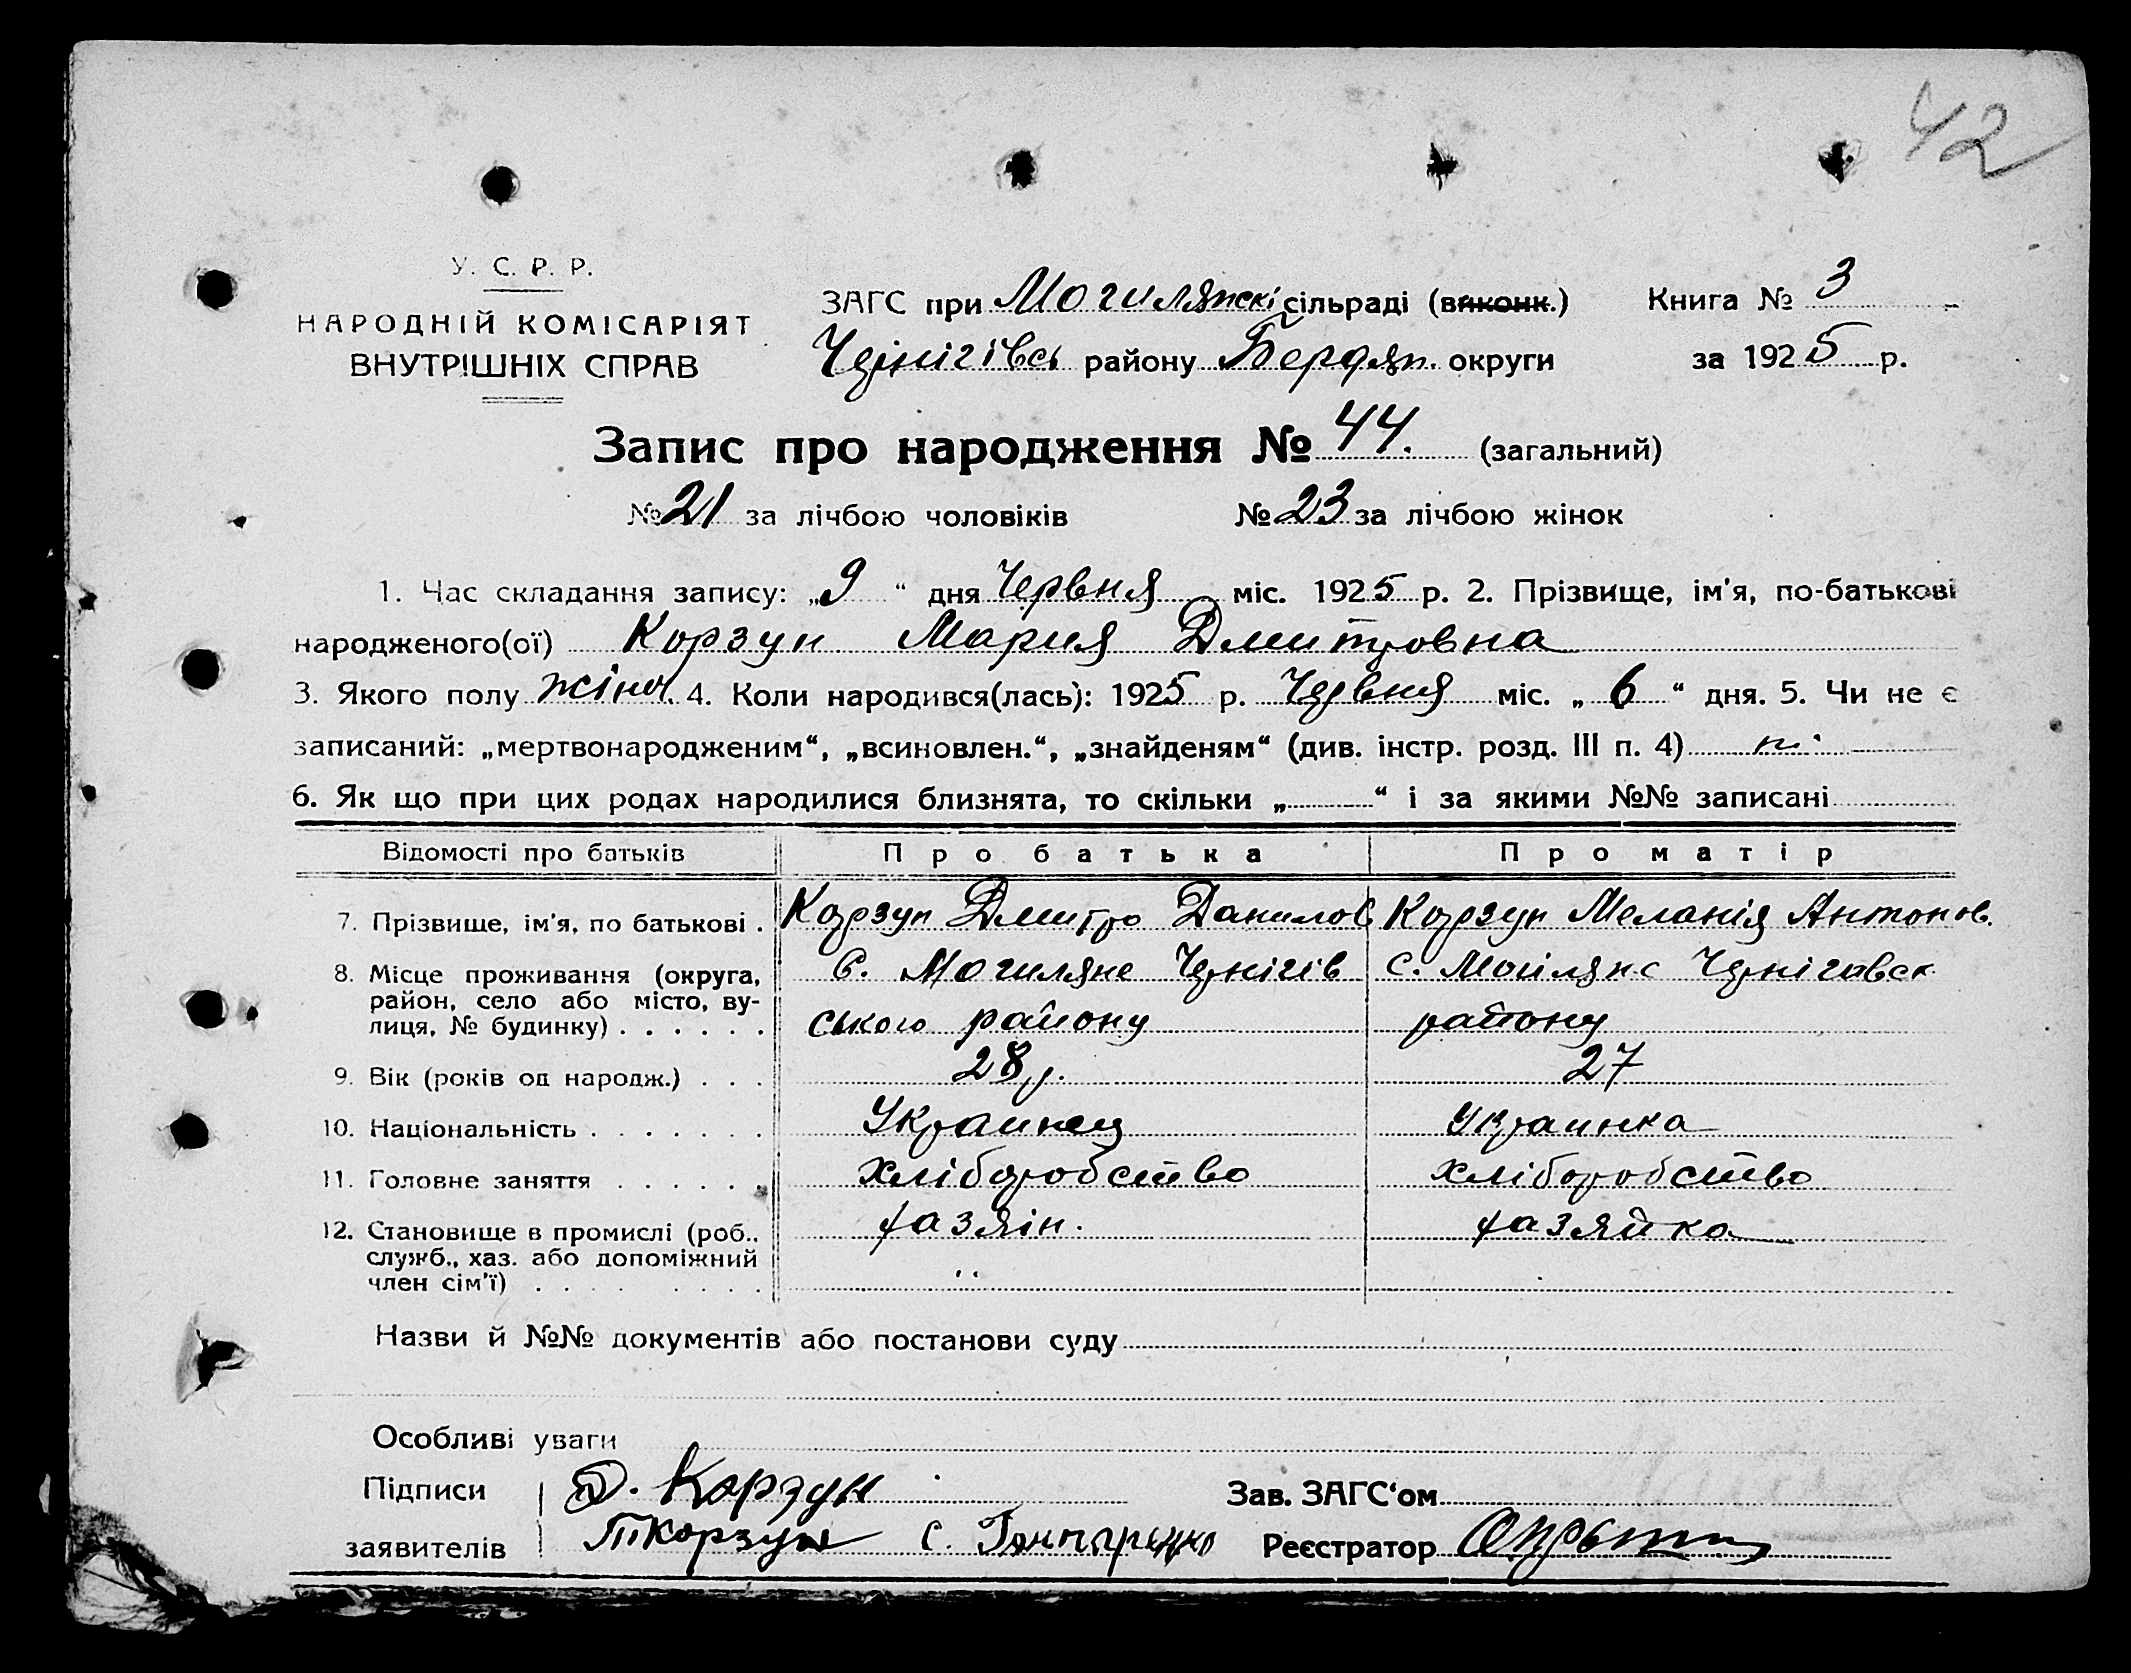 42
У. С. Р. Р.
НАРОДНІЙ КОМІСАРІЯТ
ВНУТРІШНІХ СПРАВ
ЗАГС при Могилянскі сільраді (виконк.)
Чернігівсь району Бердян. округи
Книга № 3
за 1925 р.
Запис про народження № 44. (загальний)
№ 21 за лічбою чоловіків № 23 за лічбою жінок
1. Час складання запису: „9“ дня Червня міс. 1925 р. 2. Прізвище, ім'я, по-батькові
народженого(ої) Корзун Мария Дмитровна
3. Якого полу жіноч. 4. Коли народився(лась): 1925 р. Червня міс. „6“ дня. 5. Чи не є
записаний: „мертвонародженим“, „всиновлен.“, „знайденям“ (див. інстр. розд. III п. 4) н.
6. Як що при цих родах народилися близнята, то скільки „ “ і за якими №№ записані
Відомості про батьків Про батька Про матір
7. Прізвище, ім'я, по батькові . Корзун Дмитро Данилов Корзун Меланія Антонов.
8. Місце проживання (округа, С. Могиляне Чернігів с. Могіляне Чернігавск
район, село або місто, ву-
лиця, № будинку) . . . . . . ського району району
9. Вік (років од народж.) . . . 28 р. 27
10. Національність . . . . . . . Украинец Украинка
11. Головне заняття . . . . . . хліборобство хліборобство
12. Становище в промислі (роб., хазяін. хазяйка
служб., хаз. або допоміжний
член сім'ї) . . . . . . .
Назви й №№ документів або постанови суду
Особливі уваги
Підписи Д. Корзун Зав. ЗАГС'ом
заявителів Корзун С. Гончаренко Реєстратор